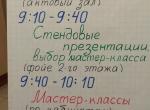 (актовый зал)
9:10 - 9:40
Стендовые
презентации,
выбор мастер-класса
(фойе 2-го этажа)
9:40 - 10:10
Мастер-классы